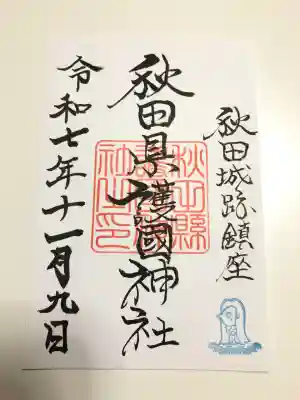 秋田城跡鎮座
秋田県護國神社
秋田縣
護國神
社之印
令和七年十一月九日